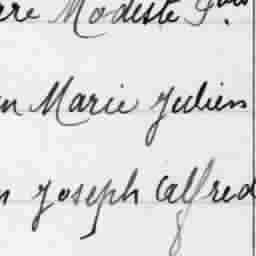 Modeste
Marie Julien
Joseph Alfred